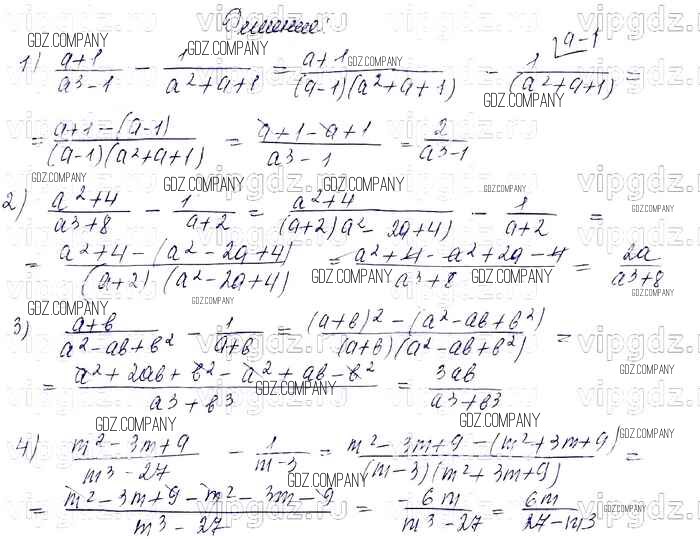 Решение:
1) (a+1)/(a³-1) - 1/(a²+a+1) = (a+1)/((a-1)(a²+a+1)) - 1/(a²+a+1) ⌊a-1 =
= (a+1-(a-1))/((a-1)(a²+a+1)) = (a+1-a+1)/(a³-1) = 2/(a³-1)
2) (a²+4)/(a³+8) - 1/(a+2) = (a²+4)/((a+2)(a²-2a+4)) - 1/(a+2) =
= (a²+4-(a²-2a+4))/((a+2)(a²-2a+4)) = (a²+4-a²+2a-4)/(a³+8) = 2a/(a³+8)
3) (a+b)/(a²-ab+b²) - 1/(a+b) = ((a+b)²-(a²-ab+b²))/((a+b)(a²-ab+b²)) =
= (a²+2ab+b²-a²+ab-b²)/(a³+b³) = 3ab/(a³+b³)
4) (m²-3m+9)/(m³-27) - 1/(m-3) = (m²-3m+9-(m²+3m+9))/((m-3)(m²+3m+9)) =
= (m²-3m+9-m²-3m-9)/(m³-27) = -6m/(m³-27) = 6m/(27-m³)
GDZ.COMPANY
vipgdz.ru